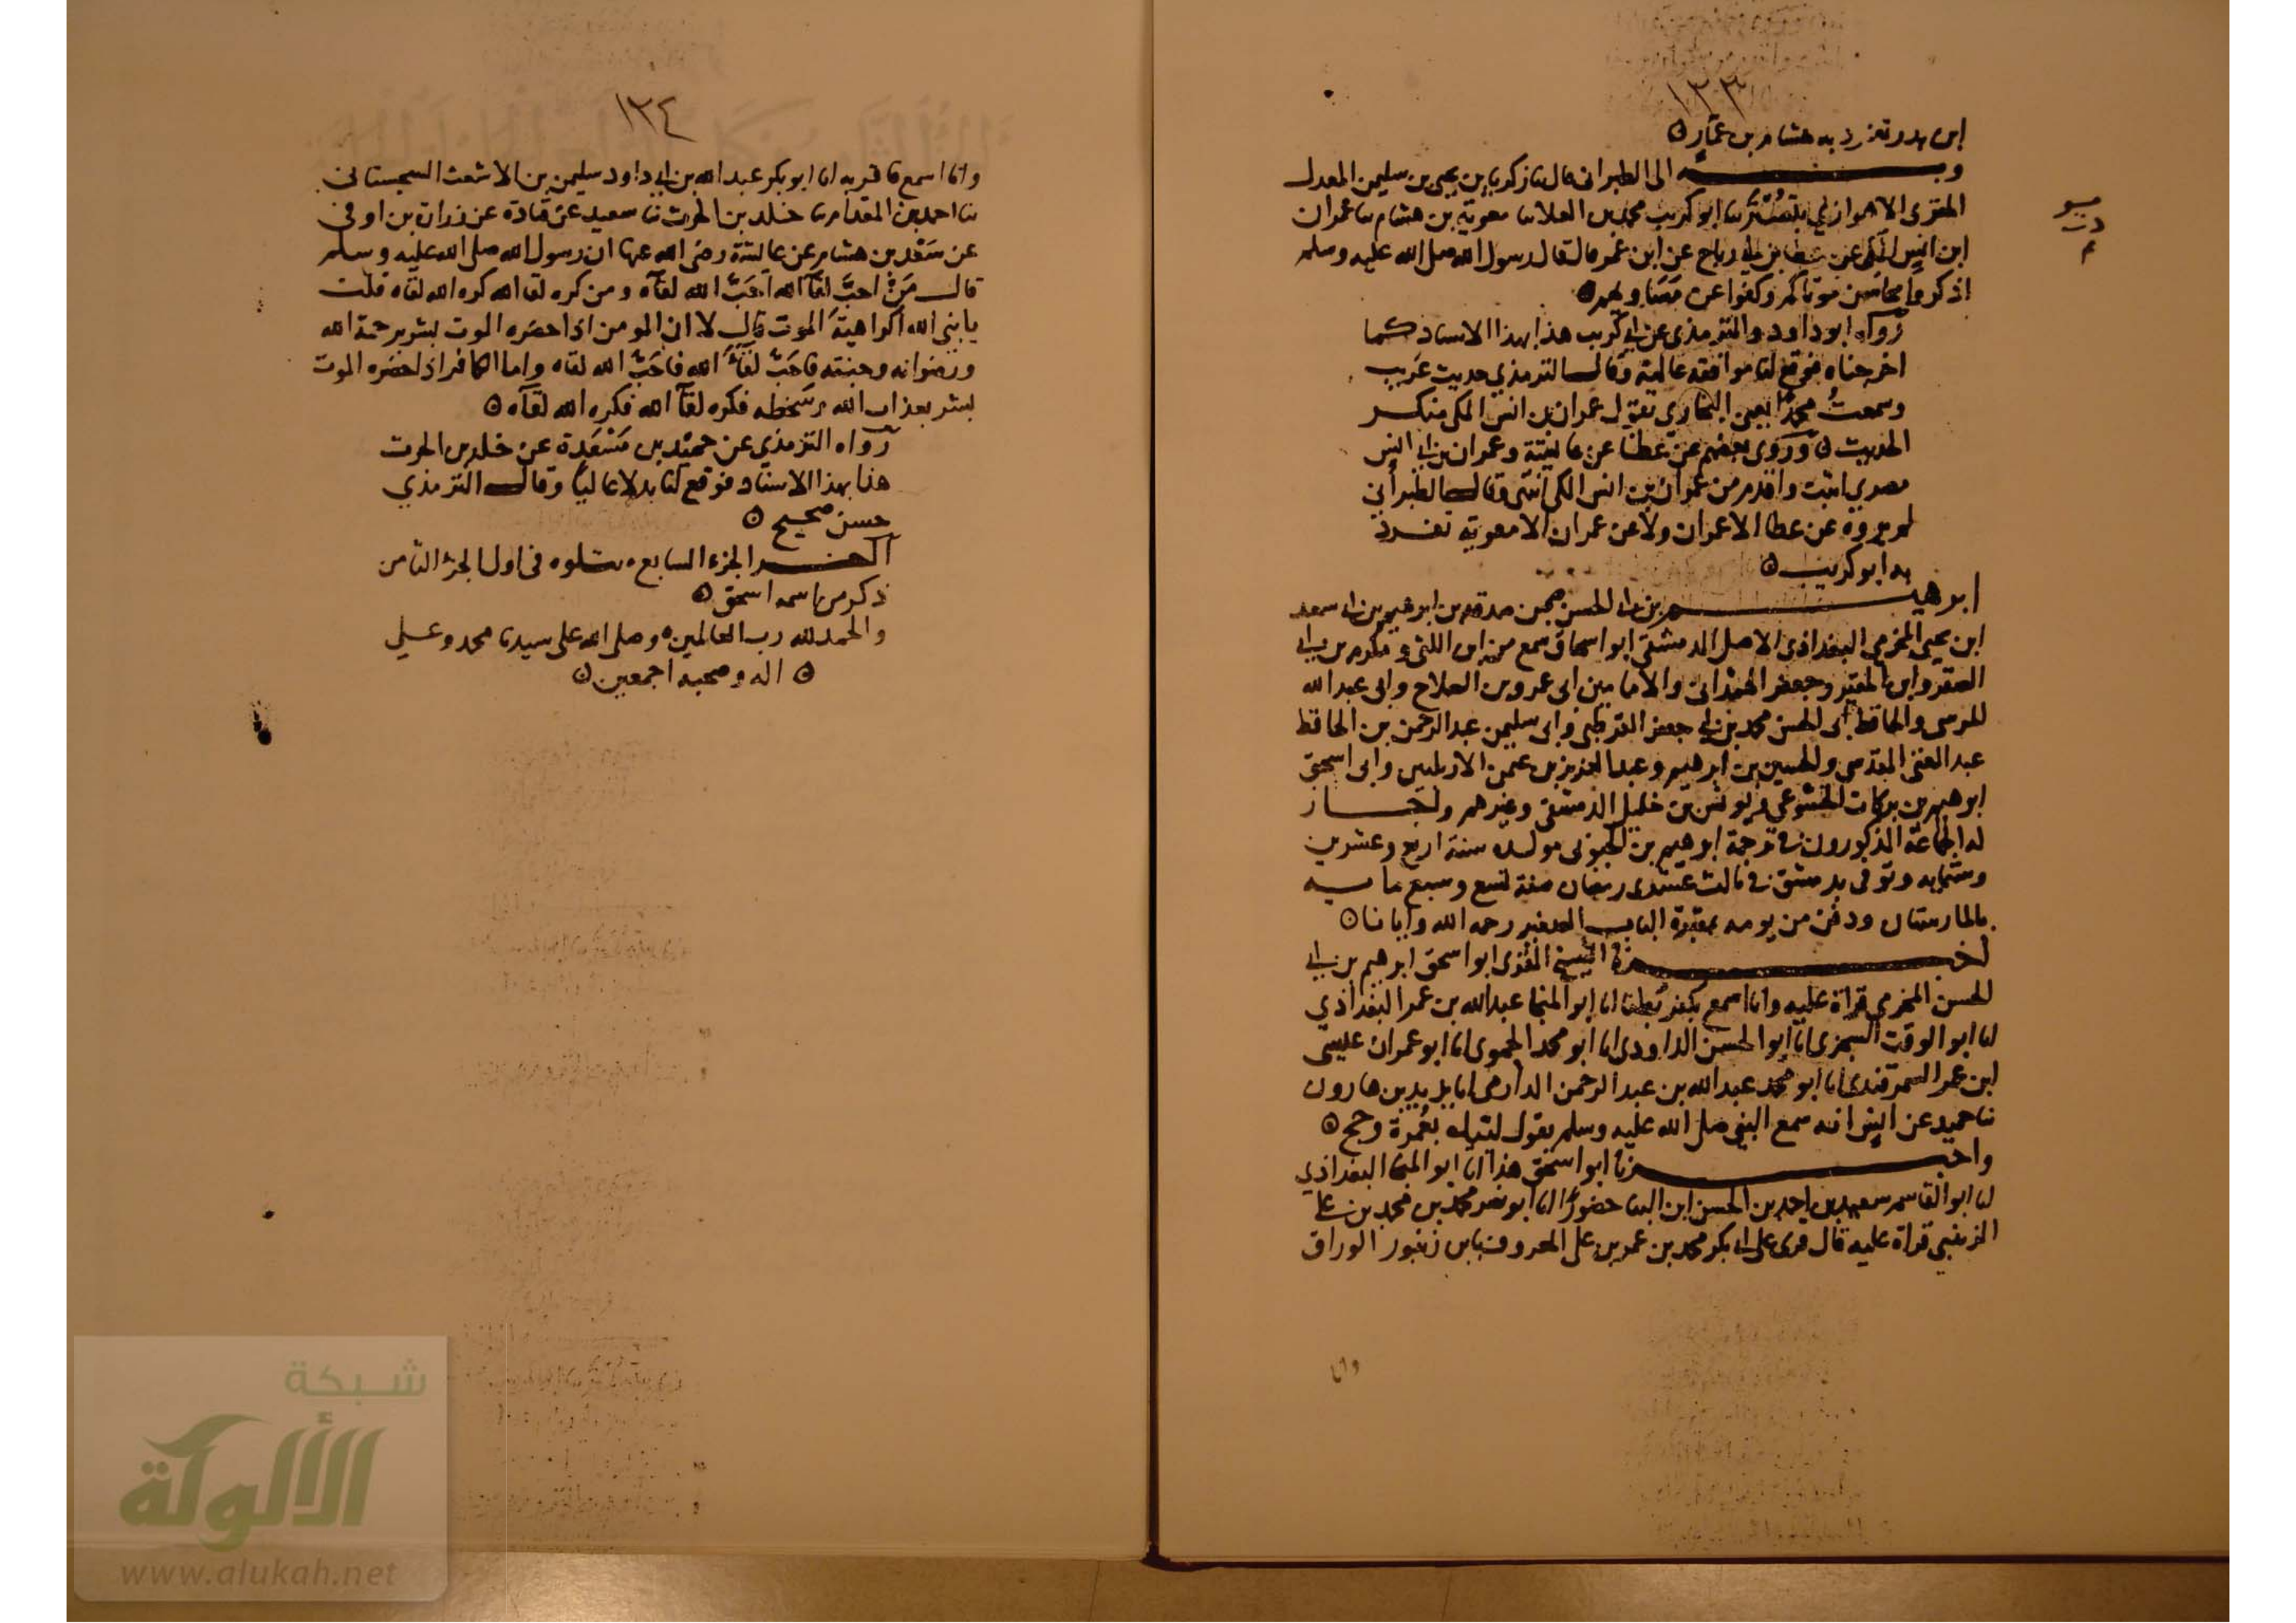 ١٣٣
ابن بدر تفرد به هشام بن عمار ۞
وبه الى الطبرانى قال نا زكريا بن يحيى بن سليمن المعدل
المقرى الاهوازي بتستر نا ابو كريب محمد بن العلا نا معوية بن هشام نا عمران
ابن انس المكى عن عطا بن ابى رباح عن ابن عمر قال قال رسول الله صلى الله عليه وسلم
اذكروا محاسن موتاكم وكفوا عن مساويهم ۞
رواه ابو داود والترمذى عن ابى كريب هذا بهذا الاسناد كما
اخرجناه فوقع لنا موافقة عالية وقال الترمذي حديث غريب
وسمعت محمدا يعنى البخاري يقول عمران بن انس المكى منكر
الحديث ۞ وروى بعضهم عن عطا عن عايشة وعمران بن ابى انس
مصري اثبت واقدم من عمران بن انس المكى انتهى وقال الطبرانى
لم يروه عن عطا الا عمران ولا عن عمران الا معوية تفرد
به ابو كريب ۞
ابرهيم بن ابى الحسن بن صدقه بن ابرهيم
ابن يحيى المخرمي البغداذى الاصل الدمشقى ابو اسحاق سمع من ابن اللتى ومكرم بن ابى
الصقر وابن المقير وجعفر الهمذانى والامامين ابى عمرو بن الصلاح وابى عبد الله
المرسى والحافظ ابى الحسن محمد بن ابى جعفر القرطبى وابى سليمن عبد الرحمن بن الحافظ
عبد الغنى المقدسى والحسين بن ابرهيم وعبد العزيز بن عثمن الاربليين وابى اسحق
ابرهيم بن بركات الخشوعى ويونس بن خليل الدمشقى وغيرهم واجاز
له الجماعة المذكورون في ترجمة ابرهيم بن الحبوبى مولده سنة اربع وعشرين
وستمايه وتوفى بدمشق في ثالث عشرى رمضان سنة تسع وسبع مايه
بالمارستان ودفن من يومه بمقبرة الباب الصغير رحمه الله وايانا ۞
اخبرنا الشيخ المقرى ابو اسحق ابرهيم بن ابى
الحسن المخرمي قراة عليه وانا اسمع بكفر بطنا انا ابو المنجا عبد الله بن عمر البغداذي
انا ابو الوقت السجزى انا ابو الحسن الداودى انا ابو محمد الحموى انا ابو عمران عيسى
ابن عمر السمرقندى انا ابو محمد عبد الله بن عبد الرحمن الدارمى انا يزيد بن هارون
نا حميد عن انس انه سمع النبي صلى الله عليه وسلم يقول لبيك بعمرة وحج ۞
واخبرنا ابو اسحق هذا انا ابو المنجا البغداذي
انا ابو القاسم سعيد بن احمد بن الحسن ابن البنا حضورا انا ابو نصر محمد بن محمد بن على
الزينبي قراة عليه قال قرى على ابى بكر محمد بن عمر بن على المعروف بابن زنبور الوراق
وانا
١٣٤
وانا اسمع فاقر به انا ابو بكر عبد الله بن ابى داود سليمن بن الاشعث السجستانى
نا احمد بن المقدام نا خلد بن الحرث نا سعيد عن قتادة عن زرارة بن اوفى
عن سعد بن هشام عن عايشة رضى الله عنها ان رسول الله صلى الله عليه وسلم
قال من احب لقاء الله احب الله لقاه ومن كره لقا الله كره الله لقاه قلت
يا نبي الله اكراهية الموت قال لا ان المومن اذا حضره الموت بشر برحمة الله
ورضوانه وجنته فاحب لقاء الله فاحب الله لقاه واما الكافر اذا حضره الموت
بشر بعذاب الله وسخطه فكره لقآ الله فكره الله لقآه ۞
رواه الترمذي عن حميد بن مسعدة عن خلد بن الحرث
هذا بهذا الاسناد فوقع لنا بدلا عاليا وقال الترمذي
حسن صحيح ۞
آخر الجزء السابع يتلوه فى اول الجزء الثامن
ذكر من اسمه اسحق ۞
والحمد لله رب العالمين وصلى الله على سيدنا محمد وعلى
۞ اله وصحبه اجمعين ۞
شبكة
الألوكة
www.alukah.net